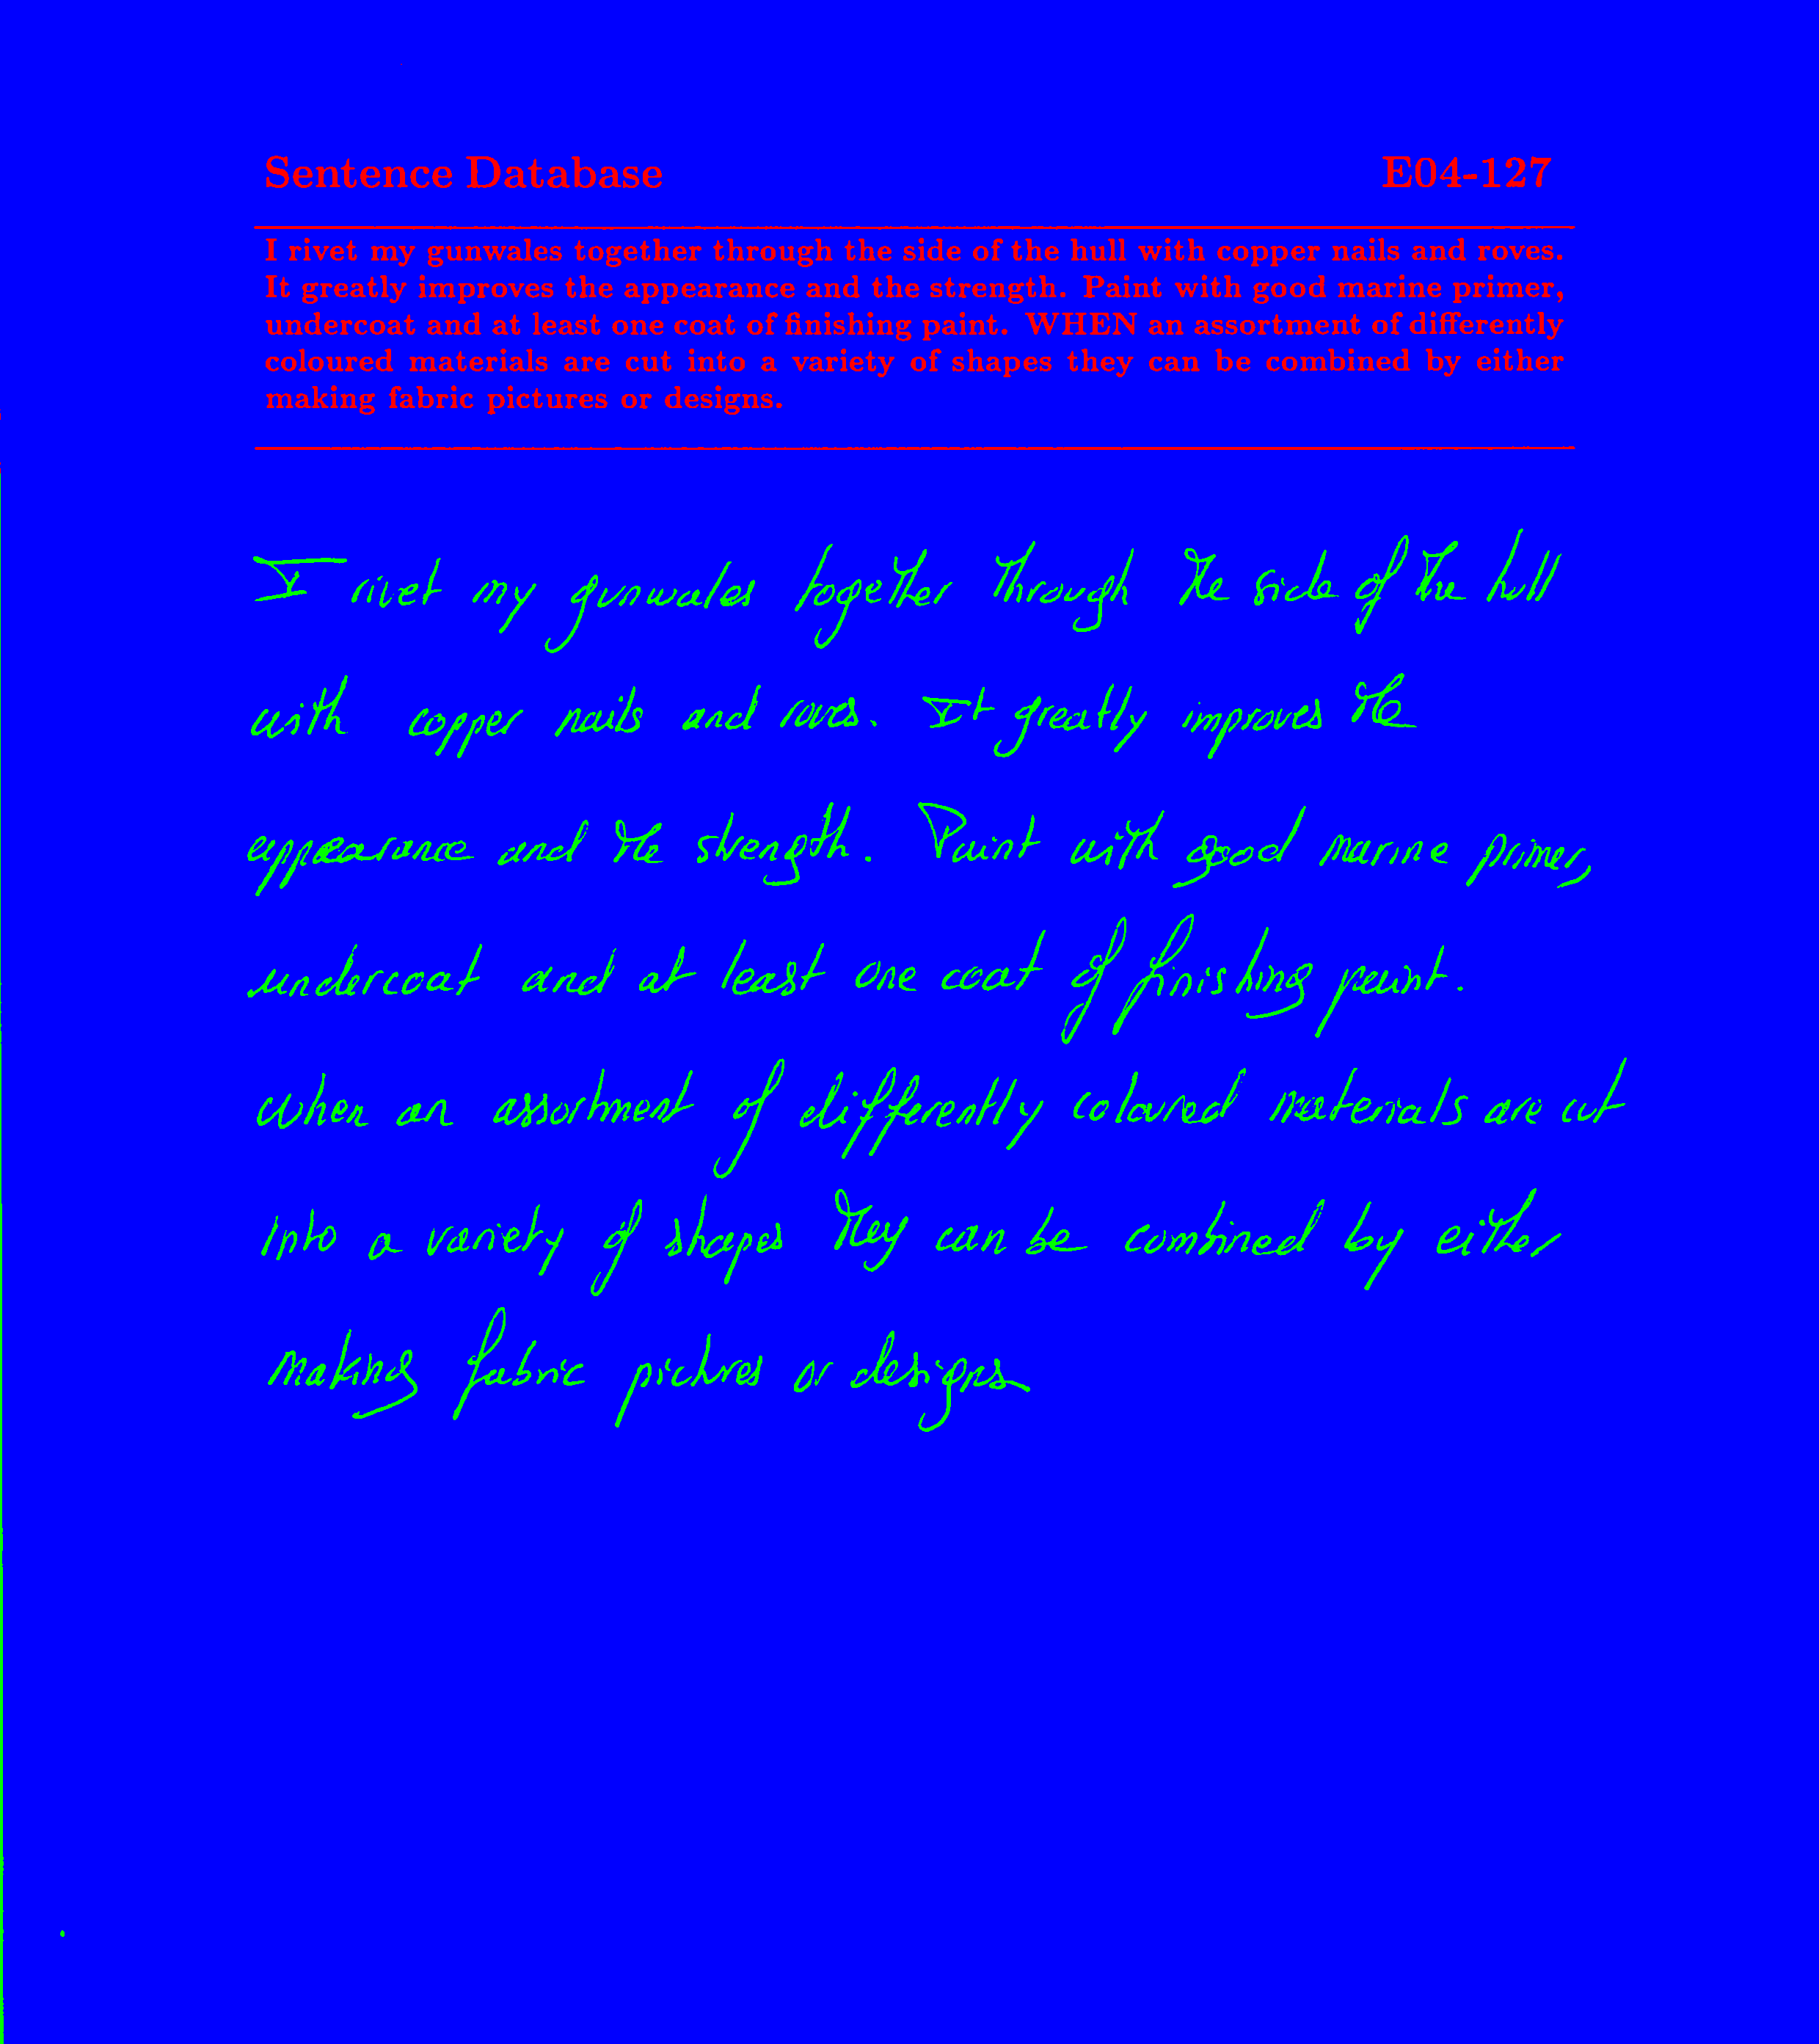 Sentence Database E04-127
I rivet my gunwales together through the side of the hull with copper nails and roves.
It greatly improves the appearance and the strength. Paint with good marine primer,
undercoat and at least one coat of finishing paint. WHEN an assortment of differently
coloured materials are cut into a variety of shapes they can be combined by either
making fabric pictures or designs.
I rivet my gunwales together through the side of the hull
with copper nails and roves. It greatly improves the
appearance and the strength. Paint with good marine primer,
undercoat and at least one coat of finishing paint.
When an assortment of differently coloured materials are cut
into a variety of shapes they can be combined by either
making fabric pictures or designs